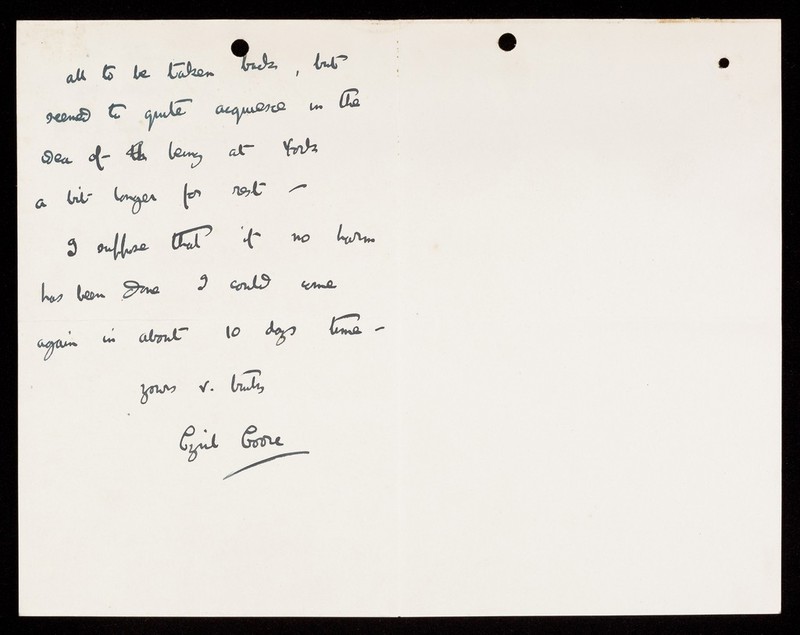 all to be taken back, but
seemed to quite acquiesce in the
idea of being at York
a bit longer for rest –
I suppose that if no harm
has been done I could come
again in about 10 days time –
yours v. truly
Cyril Coore